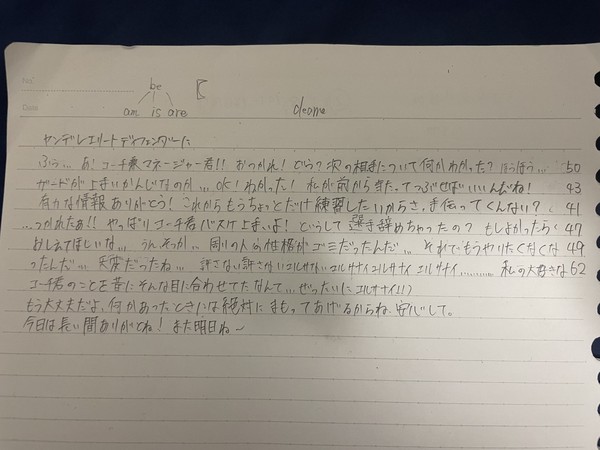 No.
Date
be
am is are
cleome
ヤンデレエリートディフェンダーた
ふぅ… あ!コーチ兼マネージャー君!! おつかれ! どう? 次の相手について何かわかった? ほうほう… 50
ガードが上手いかんじなのか… OK! わかった! 私が前から当たってつぶせばいいんだね! 43
有力な情報ありがとう! これからもうちょっとだけ練習したいからさ、手伝ってくんない? 41
…つかれたぁ!! やっぱりコーチ君バスケ上手いよ! どうして選手辞めちゃったの? もしよかったら 47
おしえてほしいな… うん、そっか… 周りの人の性格がゴミだったんだ… それでもうやりたくなくな 49
ったんだ… 大変だったね… 許さない許さない ユルサナイ ユルサナイ ユルサナイ ユルサナイ………… 私の大好きな 62
コーチ君のことを昔にそんな目に合わせてたなんて… ぜったいに ユルサナイ!!
もう大丈夫だよ、何かあったときには絶対にまもってあげるからね 安心して。
今日は長い間ありがとね! また明日ね〜